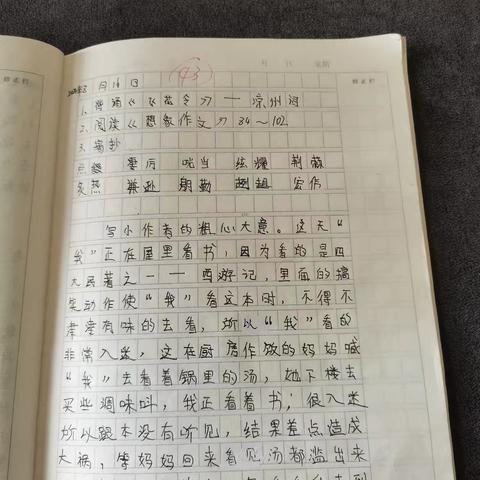 月 日 星期
修正栏
修正栏
43
月14日
1、背诵《飞花令》——凉州词
2、阅读《想象作文》84～102
3、摘抄
点缀 要厉 吆当 炫耀 荆棘
炙热 谦逊 殷勤 趔趄 宏伟
写小作者的粗心大意。这天“
我”正在屋里看书，因为看的是四
大民著之一——西游记，里面的搞
笑动作使“我”看这本时，不得不
津有味的去看，所以“我”看的
非常入迷，这在厨房作饭的妈妈喊
“我”去看着锅里的汤，她下楼去
买些调味料，我正看着书；很入迷
所以跟本没有听见，结果差点造成
大祸，等妈妈回来看见汤都滥出来